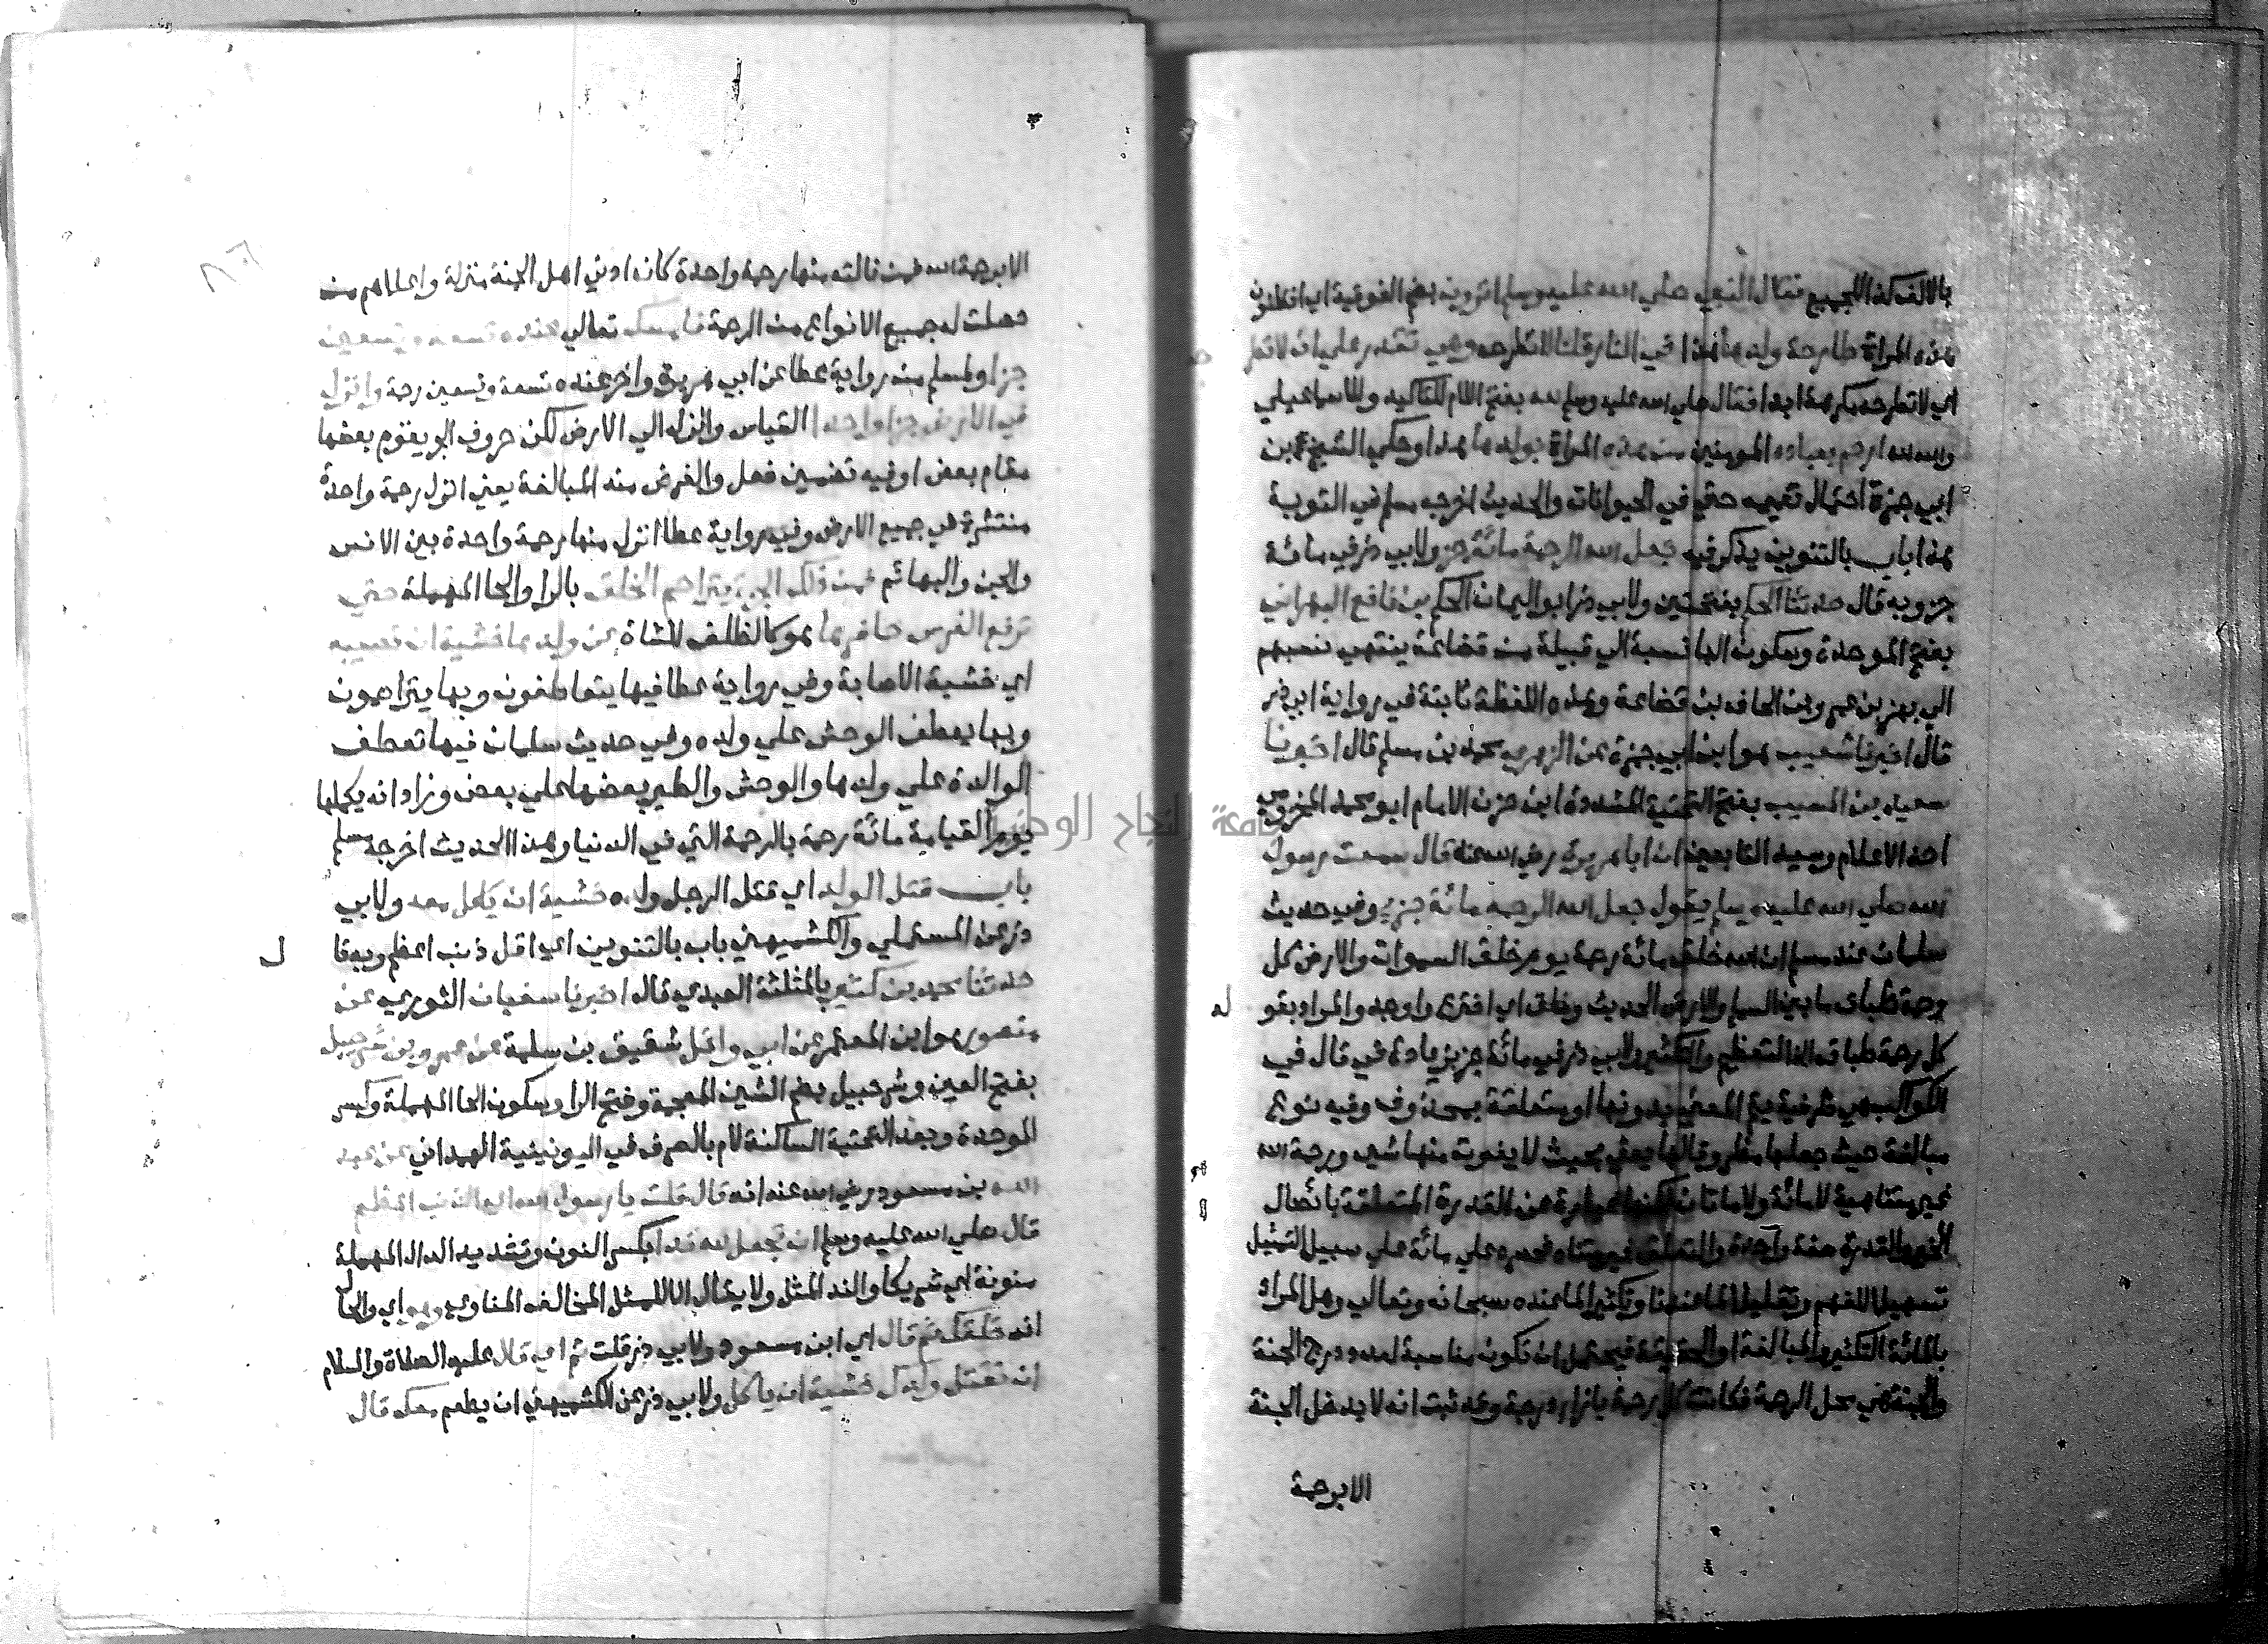 بالالف كذا للجميع فقال النبي صلي الله عليه وسلم اترون بضم الفوقية اي اتظنون
هذه المراة طارحة ولدها هذا في النار قلنا لا تطرحه وهي تقدر علي ان لا تطرحه
اي لا تطرحه مكرهة ابدا فقال صلي الله عليه وسلم لله بفتح اللام للتاكيد وللاسماعيلي
والله لله ارحم بعباده المومنين من هذه المراة بولدها هذا وحكي الشيخ محمد بن
ابي جمرة احتمال تعميمه حتي في الحيوانات والحديث اخرجه مسلم في التوبة
هذا باب بالتنوين يذكر فيه جعل الله الرحمة مائة جزء ولابي ذر في مائة
جزء وبه قال حدثنا الحكم بفتحتين ولابي ذر ابو اليمان الحكم بن نافع البهراني
بفتح الموحدة وسكون الها نسبة الي قبيلة من قضاعة ينتهي نسبهم
الي بهز بن عمرو بن الحاف بن قضاعة وهذه اللفظة ثابتة في رواية ابي ذر
قال اخبرنا شعيب هو ابن ابي حمزة عن الزهري محمد بن مسلم قال اخبرنا
سعيد بن المسيب بفتح التحتية المشددة ابن حزن الامام ابو محمد المخزومي
احد الاعلام وسيد التابعين ان ابا هريرة رضي الله عنه قال سمعت رسول
الله صلي الله عليه وسلم يقول جعل الله الرحمة مائة جزء وفي حديث
سلمان عند مسلم ان الله خلق مائة رحمة يوم خلق السموات والارض كل
رحمة طباق ما بين السما والارض الحديث وخلق اي اخترع واوجد والمراد بقوله
كل رحمة طباق الخ التعظيم والتكثير ولابي ذر في مائة جزء بزيادة في قال في
الكواكب هي ظرفية يتم المعني بدونها او متعلقة بمحذوف وفيه نوع
مبالغة حيث جعلها مظروفا لها يعني بحيث لا يفوت منها شي ورحمة الله
غير متناهية لا مائة ولا مائتان لكنها عبارة عن القدرة المتعلقة بايصال
الخير والقدرة صفة واحدة والتعلق غير متناه فحصره علي مائة علي سبيل التمثيل
تسهيلا للفهم وتقليلا لما عندنا وتكثيرا لما عنده سبحانه وتعالي وهل المراد
بالمائة التكثير والمبالغة او الحقيقة فيحتمل ان تكون مناسبة لعدد درج الجنة
والجنة هي محل الرحمة فكانت كل رحمة بازاء درجة وقد ثبت انه لا يدخل الجنة
الا برحمة
الا برحمة الله فمن نالته منها رحمة واحدة كان ادني اهل الجنة منزلة واعلاهم من
حصلت له جميع الانواع من الرحمة فامسك تعالي عنده تسعة وتسعين
جزا ولمسلم من رواية عطا عن ابي هريرة واخر عنده تسعة وتسعين رحمة وانزل
في الارض جزا واحدا القياس وانزله الي الارض لكن حروف الجر يقوم بعضها
مقام بعض او فيه تضمين فعل والغرض منه المبالغة يعني انزل رحمة واحدة
منتشرة في جميع الارض وفي رواية عطا انزل منها رحمة واحدة بين الانس
والجن والبهائم فمن ذلك الجزء يتراحم الخلق بالرا والحا المهملة حتي
ترفع الفرس حافرها هو كالظلف للشاة عن ولدها خشية ان تصيبه
اي خشية الاصابة وفي رواية عطا فيها يتعاطفون وبها يتراحمون
وبها يعطف الوحش علي ولده وفي حديث سلمان فيها تعطف
الوالدة علي ولدها والوحش والطير بعضها علي بعض وزاد انه يكملها
يوم القيامة مائة رحمة بالرحمة التي في الدنيا وهذا الحديث اخرجه مسلم
باب قتل الولد اي قتل الرجل ولده خشية ان ياكل معه ولابي
ذر عن المستملي والكشميهني باب بالتنوين اي اقل ذنب اعظم وبه قال
حدثنا محمد بن كثير بالمثلثة العبدي قال اخبرنا سفيان الثوري عن
منصور هو ابن المعتمر عن ابي وائل شقيق بن سلمة عن عمرو بن شرحبيل
بفتح العين وشرحبيل بضم الشين المعجمة وفتح الرا وسكون الحا المهملة وكسر
الموحدة وبعد التحتية الساكنة لام بالصرف في اليونينية الهمداني عن عبد
الله بن مسعود رضي الله عنه انه قال قلت يا رسول الله اي الذنب اعظم
قال صلي الله عليه وسلم ان تجعل لله ندا بكسر النون وتشديد الدال المهملة
منونة اي شريكا والند المثل ولا يقال الا للمثل المخالف المناوي وهو اي والحال
انه خلقك ثم قال اي ابن مسعود ولابي ذر قلت ثم اي قال عليه الصلاة والسلام
ان تقتل ولدك خشية ان ياكل ولابي ذر عن الكشميهني ان يطعم معك قال
جامعة النجاح الوطنية